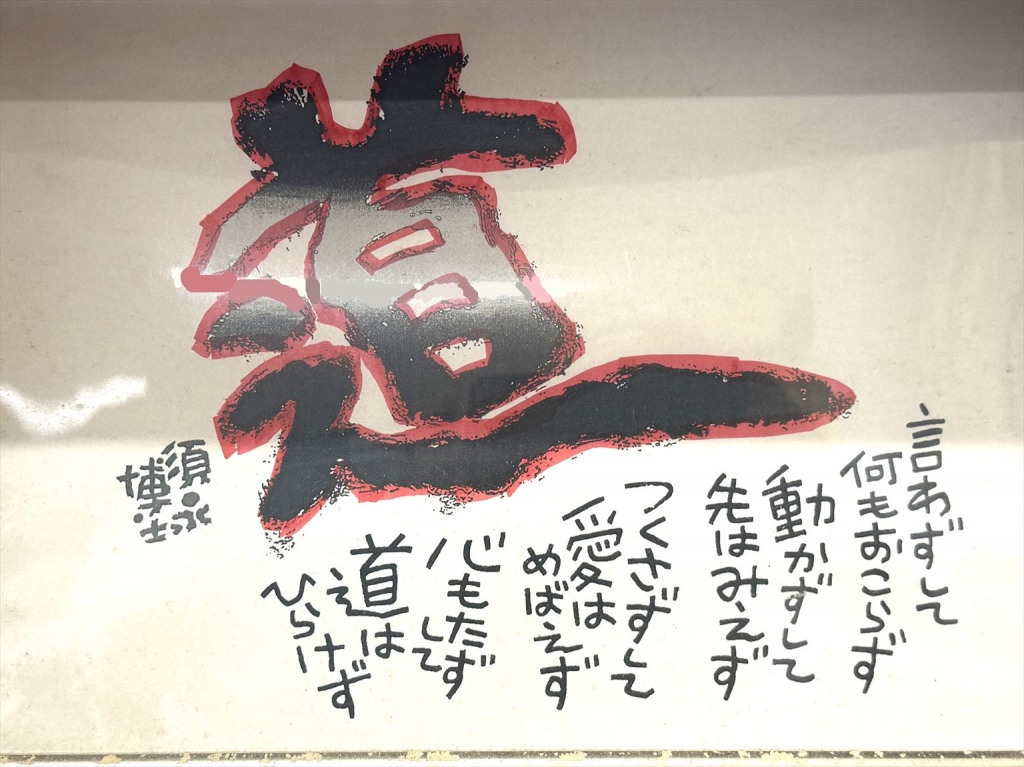 道
言わずして
何もおこらず
動かずして
先はみえず
つくさずして
愛は
めばえず
心もたず
して
道は
ひらけず
須永
博士